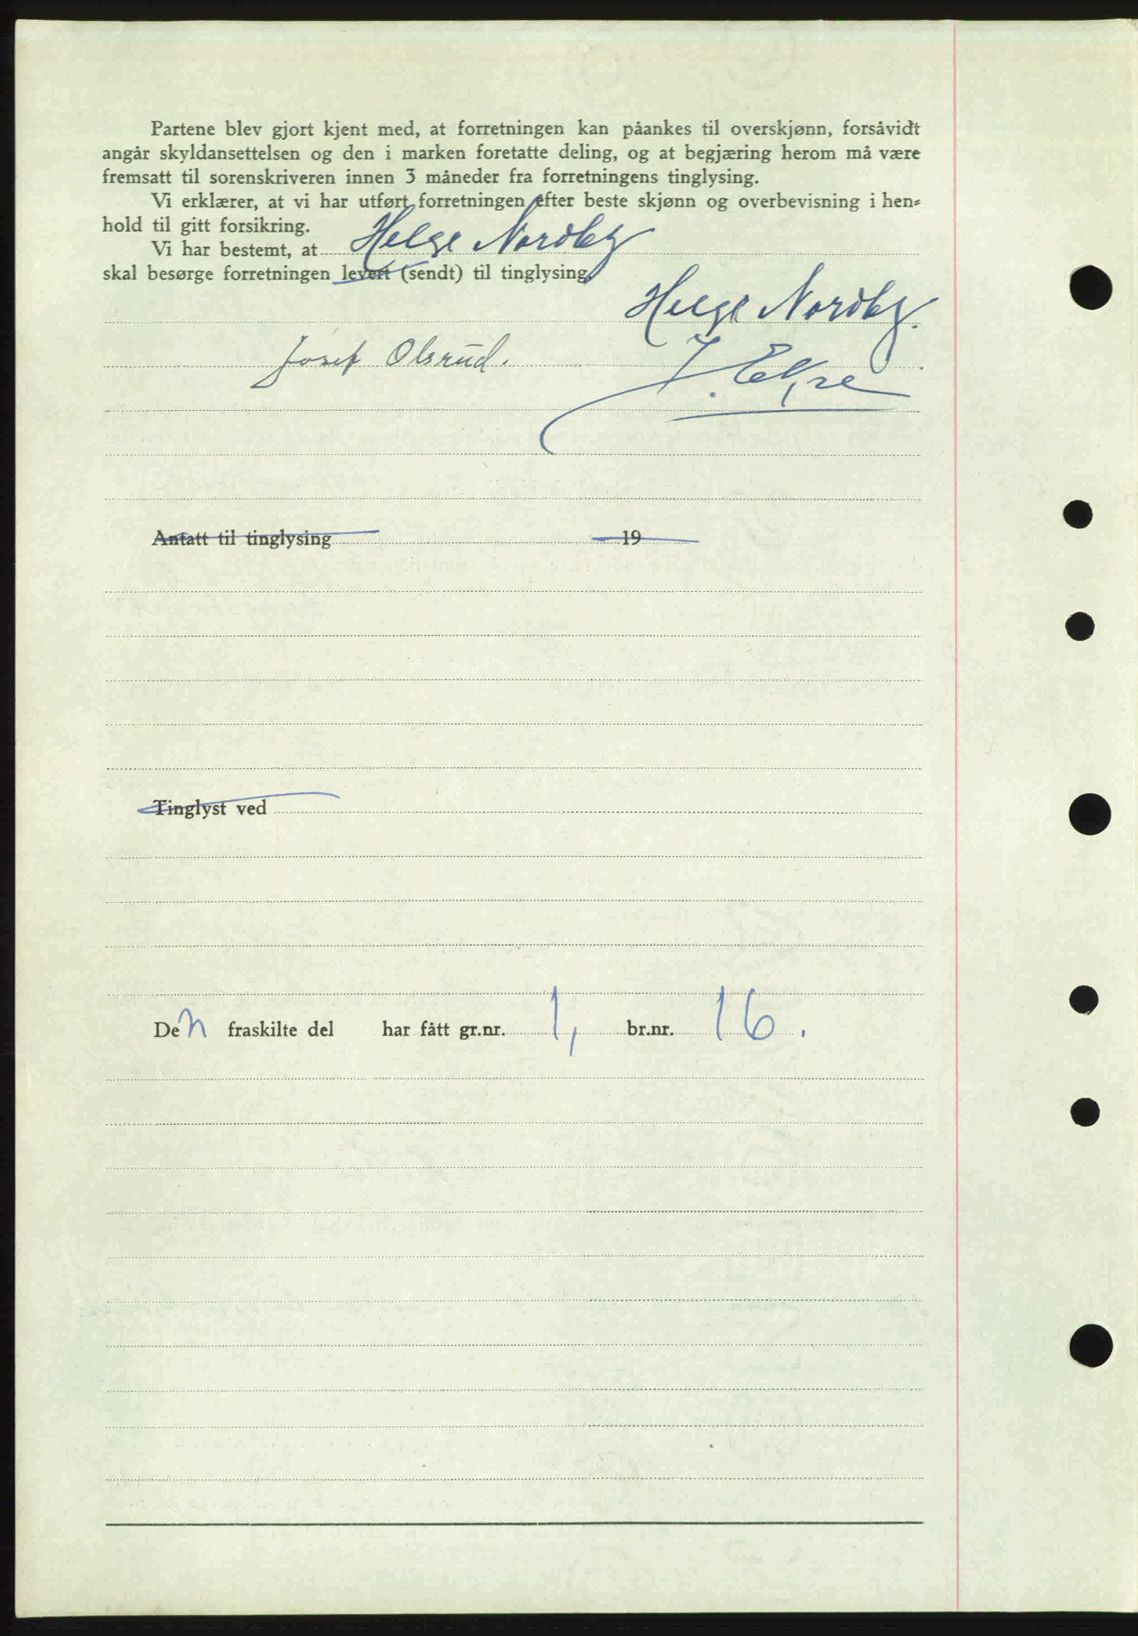 Partene blev gjort kjent med, at forretningen kan påankes til overskjønn, forsåvidt
angår skyldansettelsen og den i marken foretatte deling, og at begjæring herom må være
fremsatt til sorenskriveren innen 3 måneder fra forretningens tinglysing.
Vi erklærer, at vi har utført forretningen efter beste skjønn og overbevisning i hen=
hold til gitt forsikring.
Vi har bestemt, at Helge Nordby
skal besørge forretningen levert (sendt) til tinglysing.
Helge Nordby.
Josef Olsrud.
J. Ekre
Antatt til tinglysing 19
Tinglyst ved
Den fraskilte del har fått gr.nr. 1, br.nr. 16.